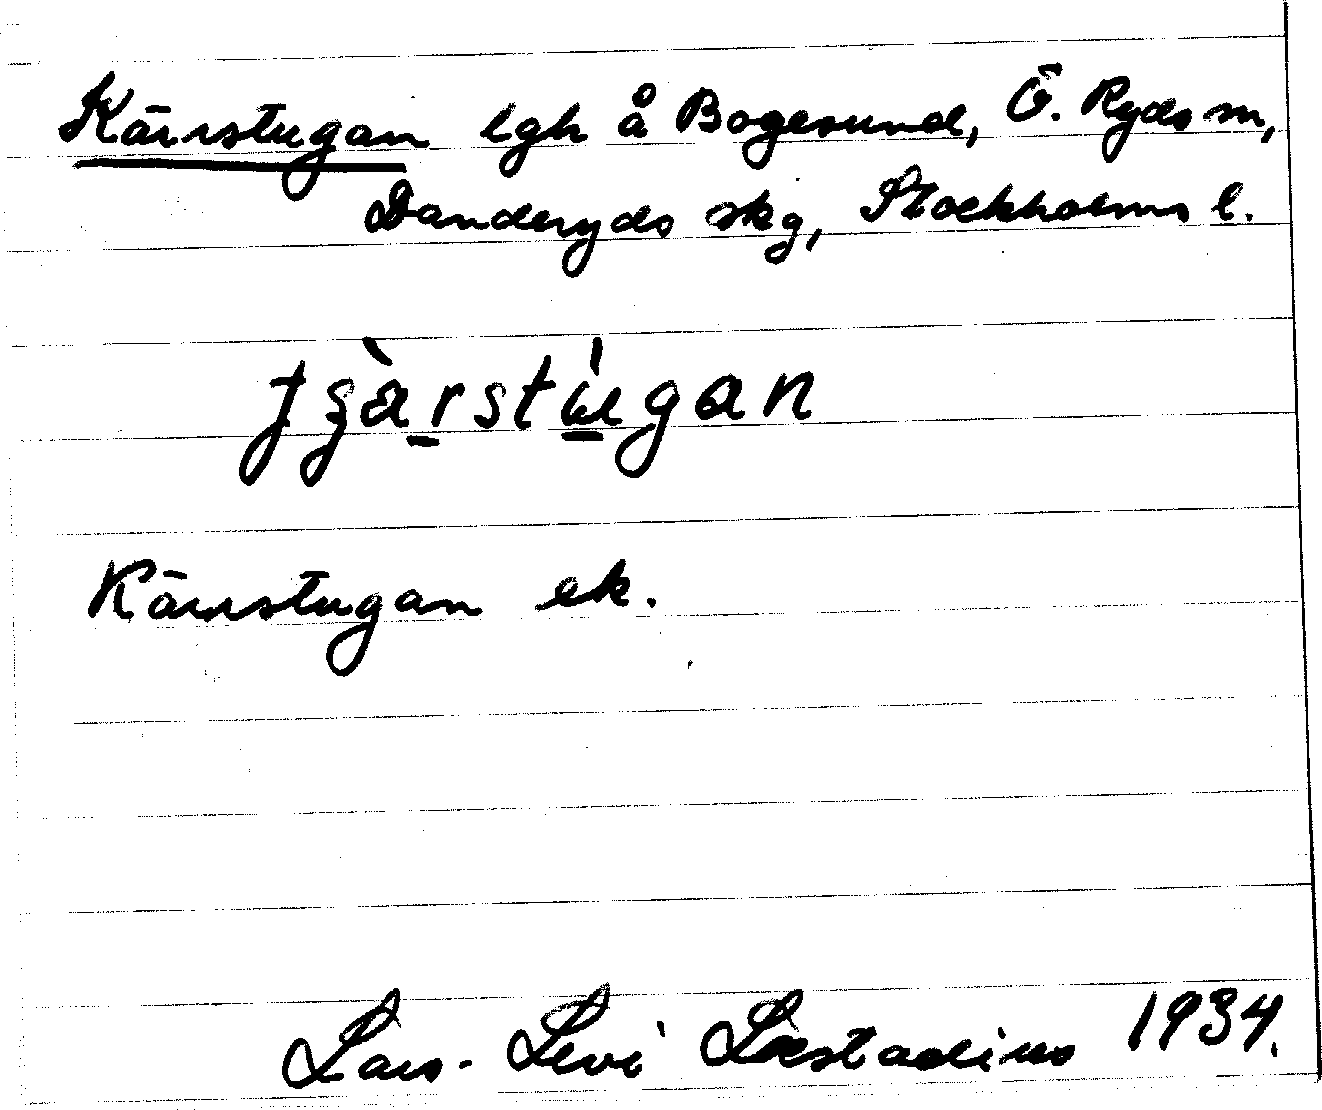 Kärrstugan lgh å Bogesund, Ö. Ryds sn,
Danderyds skg, Stockholms l.
ʃʂàrstùgan
Kärrstugan ek.
Lars-Levi Læstadius 1934.